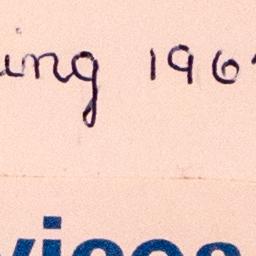 ing 196
vices